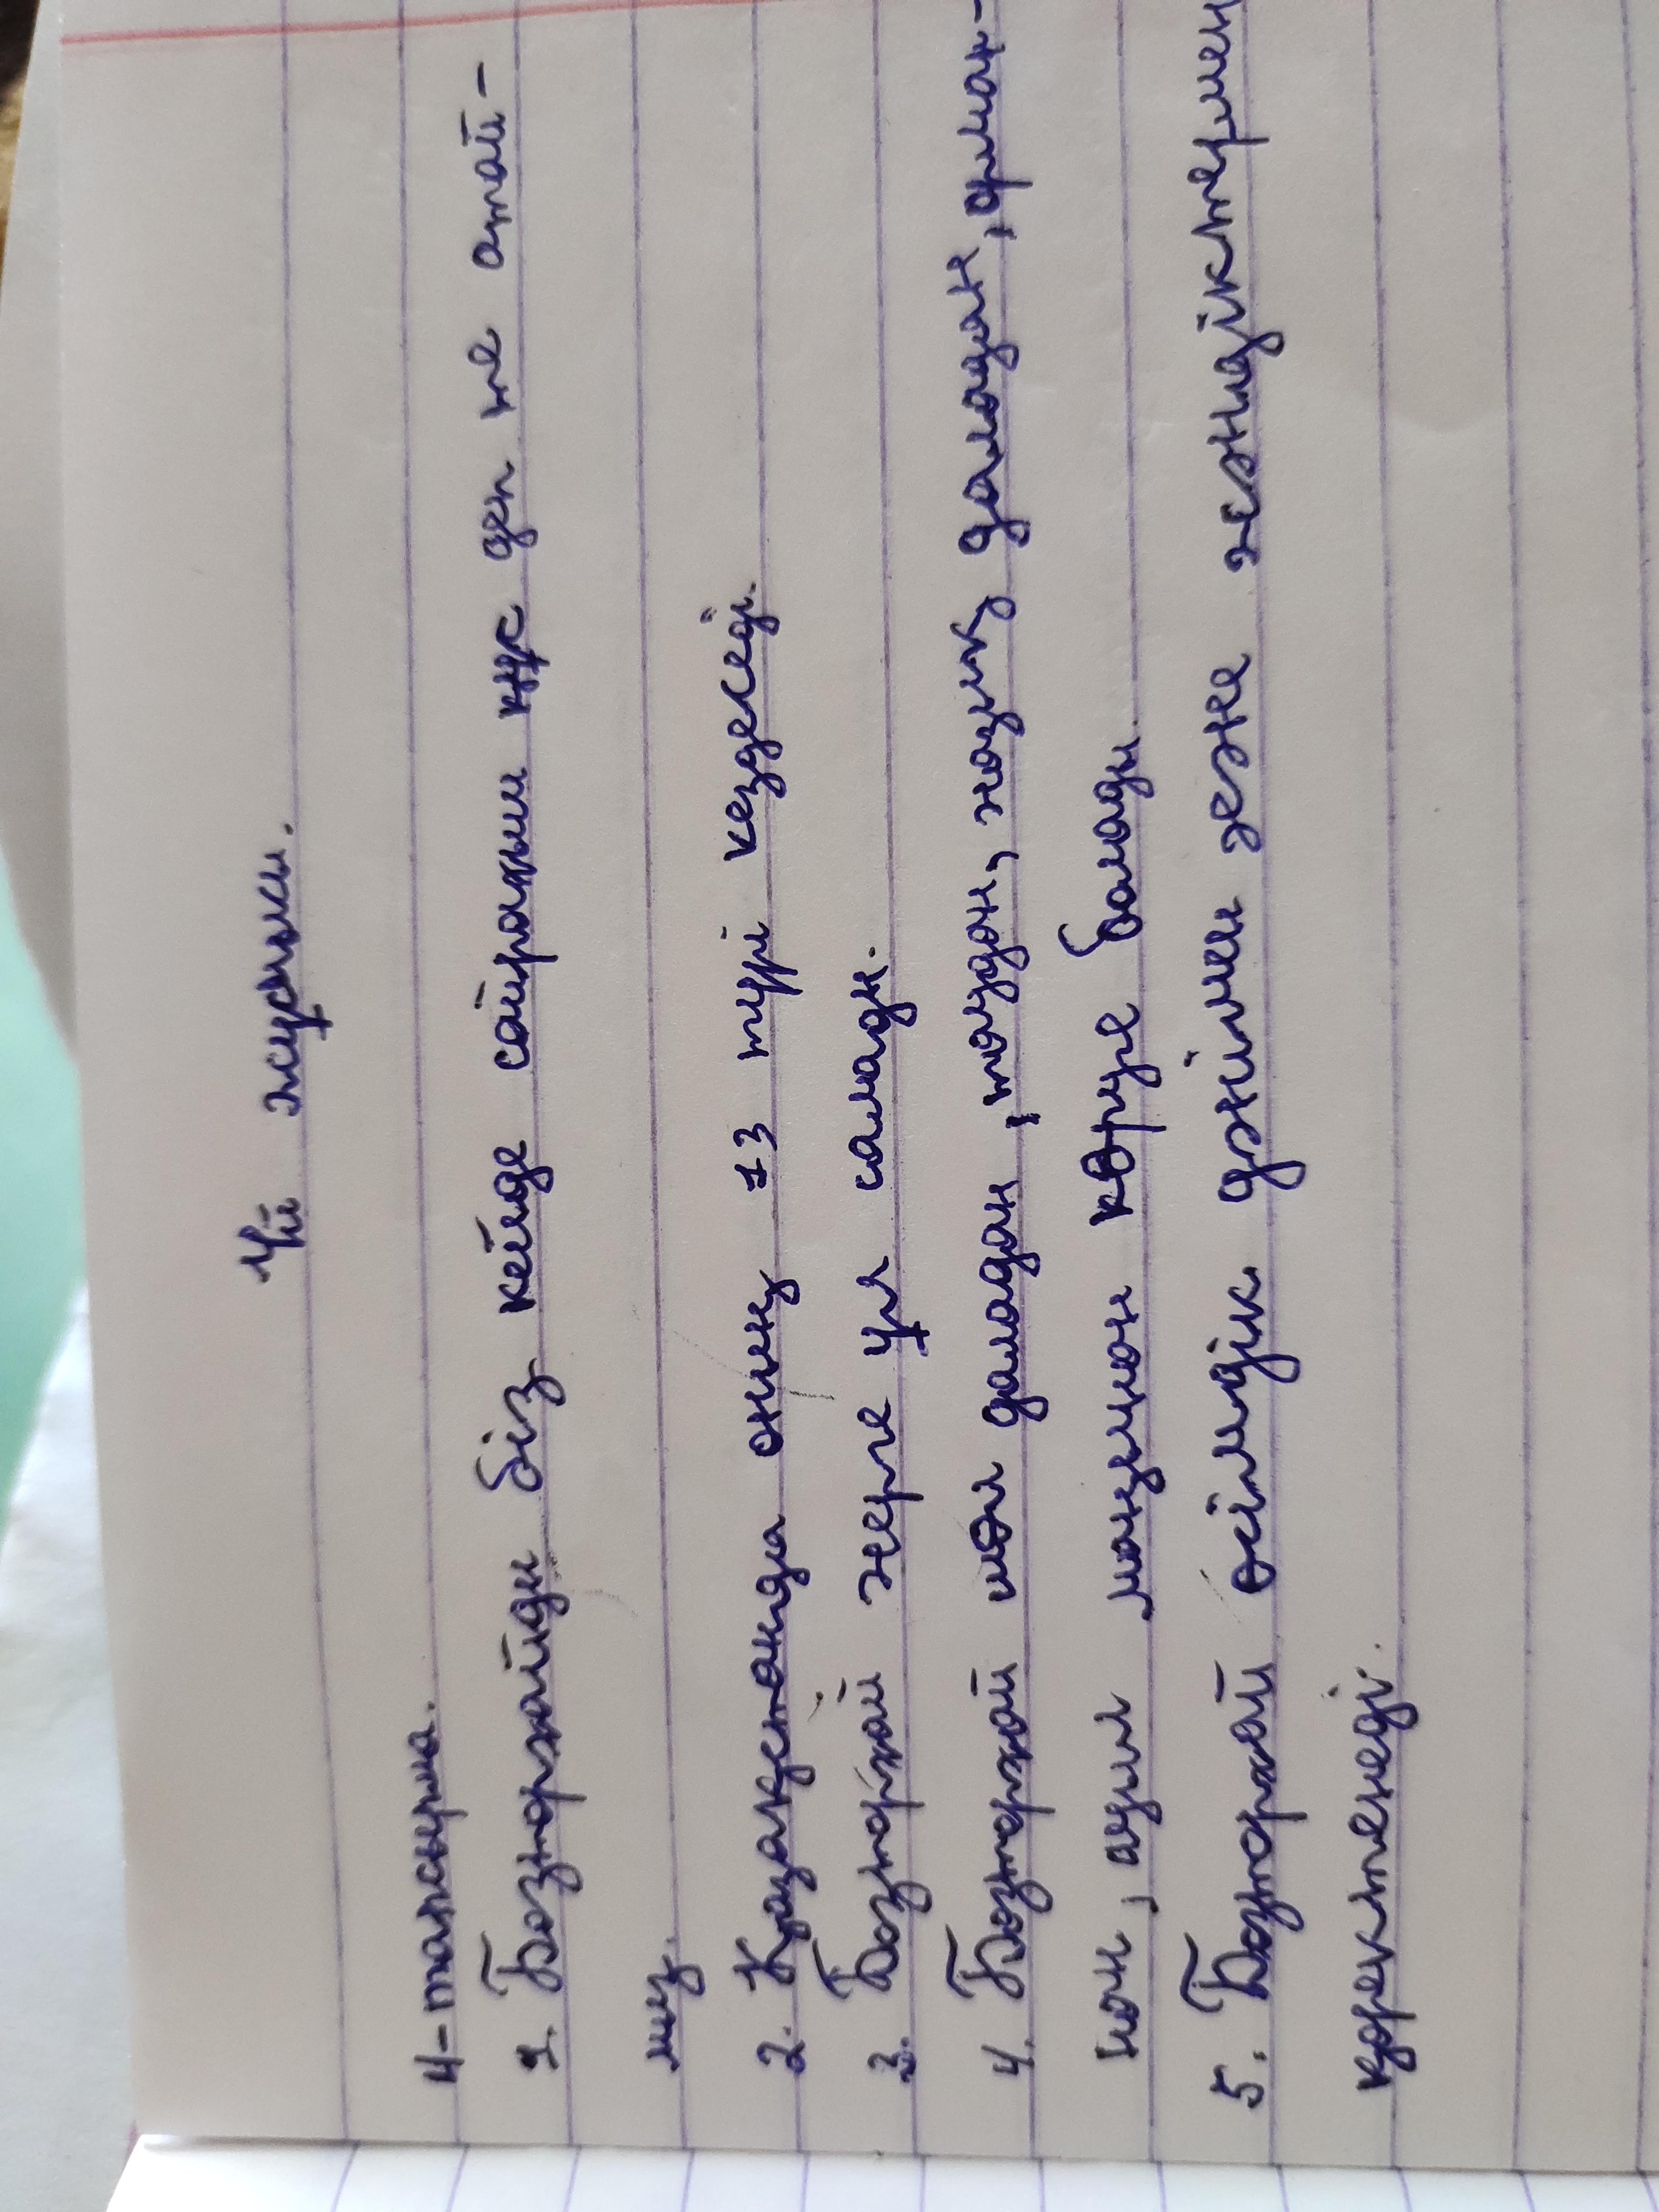 Үй жұмысы.
4-тапсырма.
1. Бозторғайды біз кейде сайрағыш құс деп те атай-
мыз.
2. Қазақстанда оның 13 түрі кездеседі.
3. Бозторғай жерге ұя салады.
4. Бозторғай шөл даладан, таудан, жазық даладан, орман-
нан, ауыл маңынан көруге болады.
5. Бозторғай өсімдік дәнімен және жәндіктермен
қоректенеді.